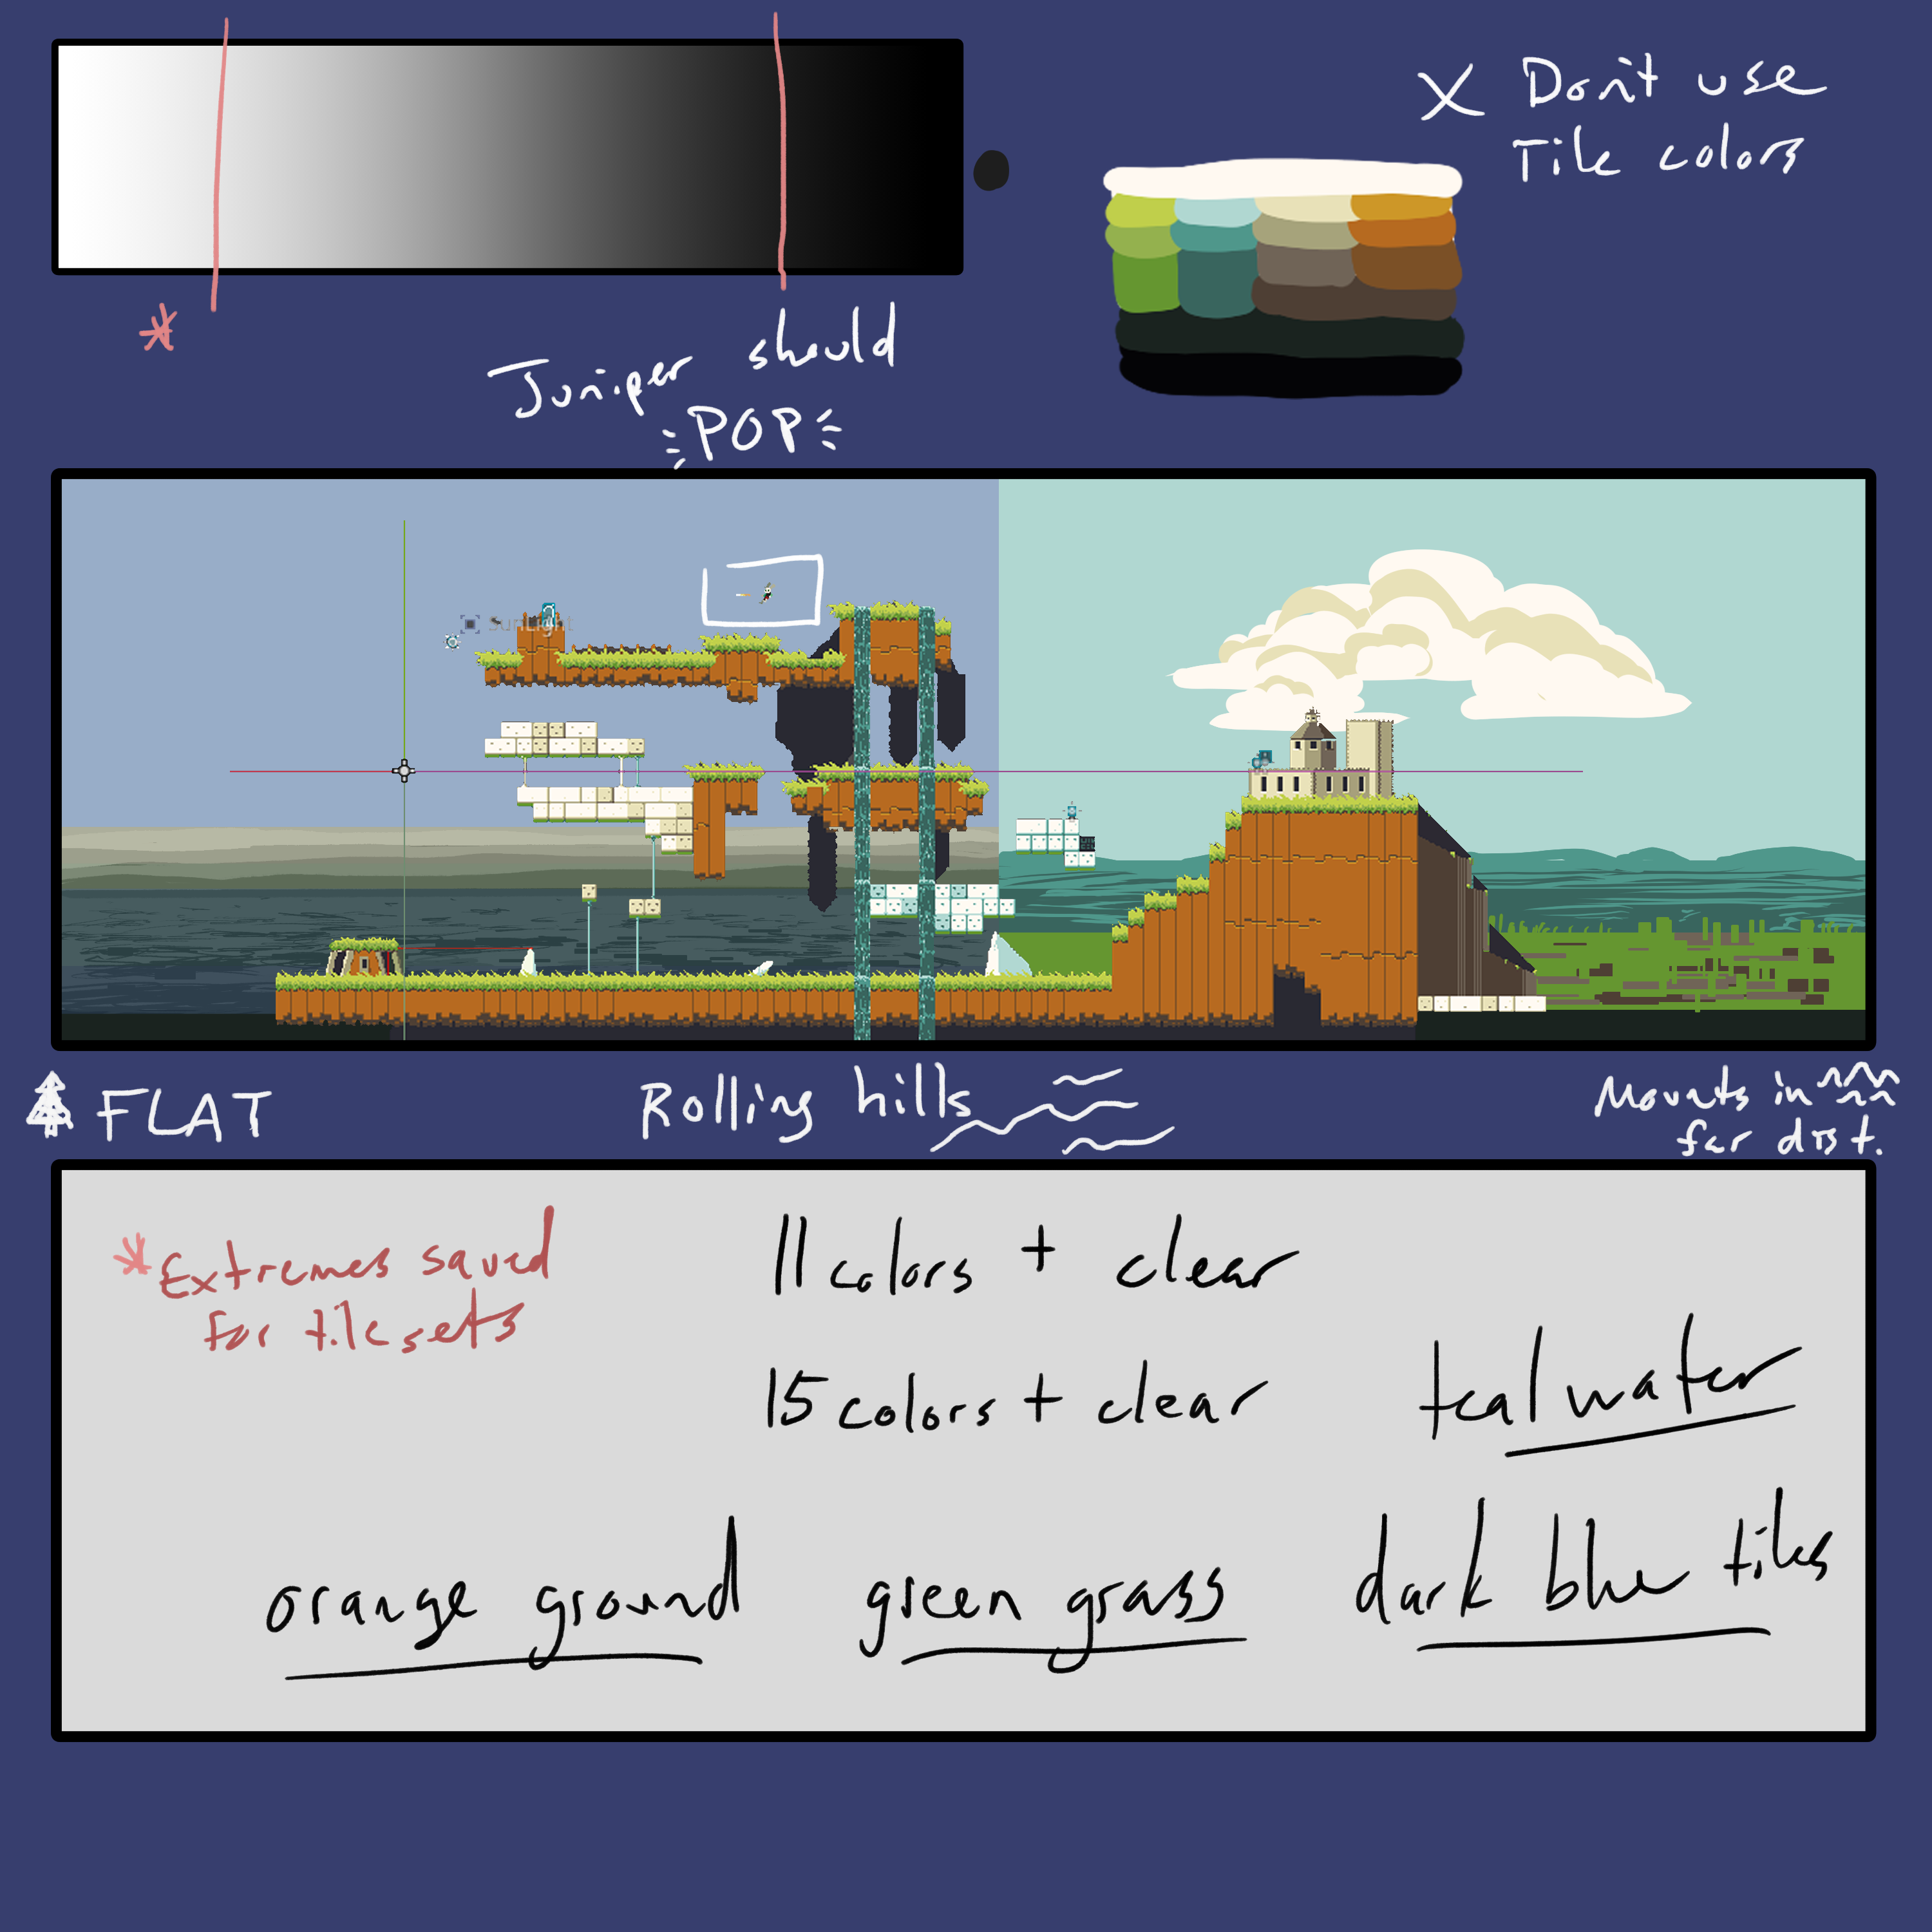 X Don't use
Tile colors
*
Juniper should
POP
SunLight
FLAT
Rolling hills
Mounts in
far dist.
* Extremes saved
for tile sets
11 colors + clear
15 colors + clear
teal water
orange ground
green grass
dark blue tiles